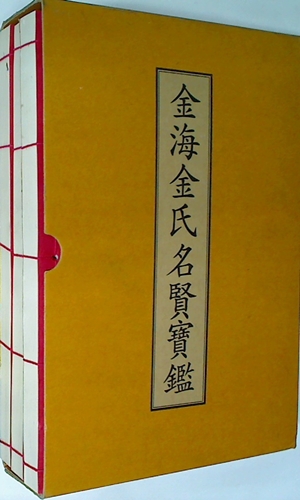 金海金氏名賢寶鑑